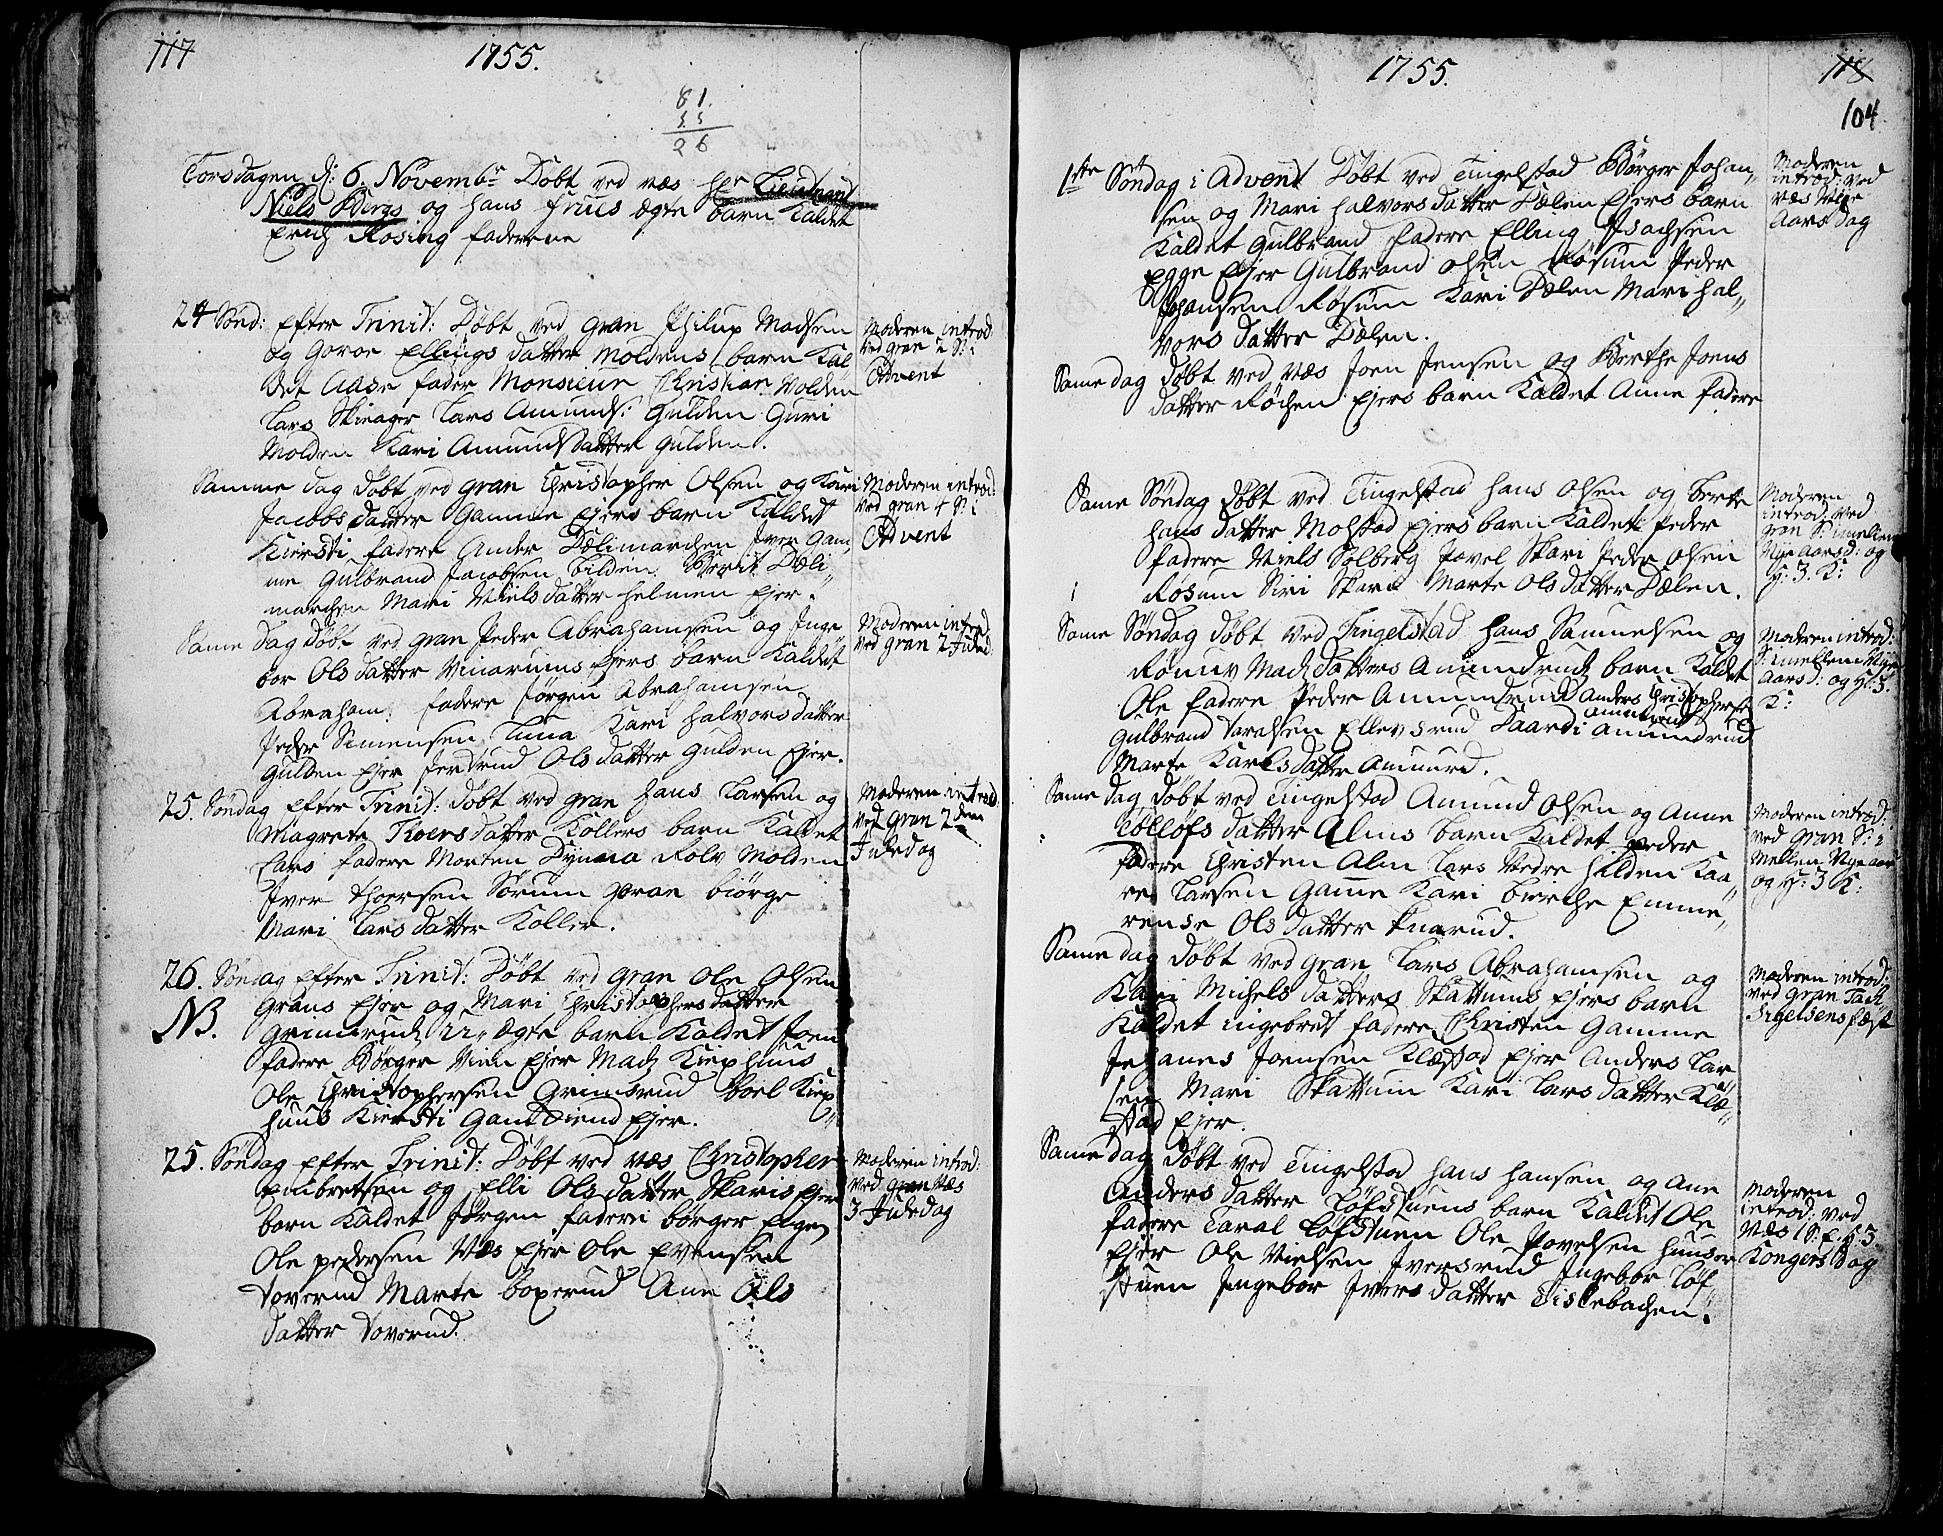 117
1755.
81.
55
26
Torsdagen d: 6. Novembr Døbt ved Næs Hr Lieutnant
Niels Bergs og hans frues ægte barn kaldet
Erich Rosing faderne
24 Sønd: efter Trinit: Døbt ved gran Philup Madsen
og Goroe Ellings datter Moldens barn kal
det Aase fader Monsieur Christian Molden
Lars Skiager Lars Amunds: Gulden Guri
Molden Kari Amunds datter Gulden.
Moderen introd
ved gran 2 S: i
Advent
Samme dag døbt ved gran Christopher Olsen og Kari
Jacobs datter Gamme Ejers barn kaldet
Kiersti fadere Ander Dælimarchen Iver Gam
me Gulbrand Jacobsen Tilden Berit Dæli
marchen Mari Niels datter Helmen Ejer.
Moderen introd:
ved gran 4 S: i
Advent
Same dag døbt ved gran Peder Abrahamsen og Inge
bor Ols datter Vinarums Ejers barn kaldet
Abraham: fadere Jørgen Abrahamsen
Peder Simensen Kari Halvors datter
Gulden Ejer Jertrud Ols datter Gulden Ejer.
Moderen introd
ved gran 2 Juled:
25. Søndag efter Trinit: døbt ved gran Hans Larsen og
Magrete Ivers datter Kollers barn kaldet
Lars fadere Morten Dynna Rolv Molden
Iver Thorsen Sørum gran biørge
Mari Lars datter Koller.
Moderen introd
ved gran 2den
Juledag
26. Søndag efter Trinit: Døbt ved gran Ole Olsen
NB. Grans Ejer og Mari Christophers datter
Grimsrud U: ægte barn kaldet Joen
fadere Børger Ejer Madz Kiephuus
Ole Christophersen Grimsrud Boel Kiep
huus Kiersti Ejer.
25. Søndag efter Trinit: Døbt ved Næs Christopher
og Elli Ols datter Skaris Ejer
barn kaldet Jørgen fadere børger
Ole Pedersen Næs Ejer Ole Evensen
Doverud Marte boxerud Ane Ols
datter Doverud.
Moderen introd:
ved Næs
3 Juledag
1755.
118
104
1ste Søndag i Advent Døbt ved Tingelstad Børger Johan
sen og Mari Halvors datter Dælen Ejers barn
kaldet Gulbrand fadere Elling Isachsen
Egge Ejer Gulbrand Olsen Røsum Peder
Johansen Røsum Kari Dælen Mari Hal
vors datter Dælen.
Moderen
introd: ved
Næs Nye
Aars dag
Same dag døbt ved Næs Joen Jensen og Berthe Joens
datter Røchen Ejers barn kaldet Anne fadere
Same Søndag døbt ved Tingelstad Hans Olsen og Berte
Hans datter Molstad Ejers barn kaldet Peder
fadere Niels Solberg Povel Skari Peder Olsen
Røsum Siri Skari Marte Ols datter Dælen.
Moderen
introd: ved
gran S: imellem
Nye aarsd: og
H: 3. K:
Same Søndag døbt ved Tingelstad Hans Samuelsen og
Rønnuv Madz datters Amundrud barn kaldet
Ole fadere Peder Amundrud Anders Christophersen
Amundrud
Gulbrand Taralsen Ellevsrud Amundrud
Marte Karlsdatter Amunrd.
Moderen introd:
S: imellem Nye
Aarsd: og H: 3.
K:
Same dag døbt ved Tingelstad Amund Olsen og Anne
Tolløfs datter Alms barn kaldet Peder
fadere Christen Alm Lars Vedre Hilden Kaa
re Larsen Gamme Kari Birthe Emme
rense Ols datter Knarud.
Moderen introd:
ved gran S: i
Mellem Nye aar
og H: 3 K:
Same dag døbt ved gran Lars Abrahamsen og
Kari Michels datters Skattums Ejers barn
kaldet ingebret fadere Christen Gamme
Johanes Joensen Klæstad Ejer Anders Lar
sen Mari Skattum Kari Lars datter Klæ
stad Ejer.
Moderen introd:
ved gran Tack
Sigelsens fæst
Same dag døbt ved Tingelstad Hans Hansen og Ane
Anders datter Løfstuens barn kaldet Ole
fadere Taral Løfstuen Ole Povelsen
Ejer Ole Nielsen Iversrud Ingebor Løf
stuen Ingebor Ivers datter Tislebachen.
Moderen
introd: ved
Næs 1 S: E. H. 3
Kongers Dag